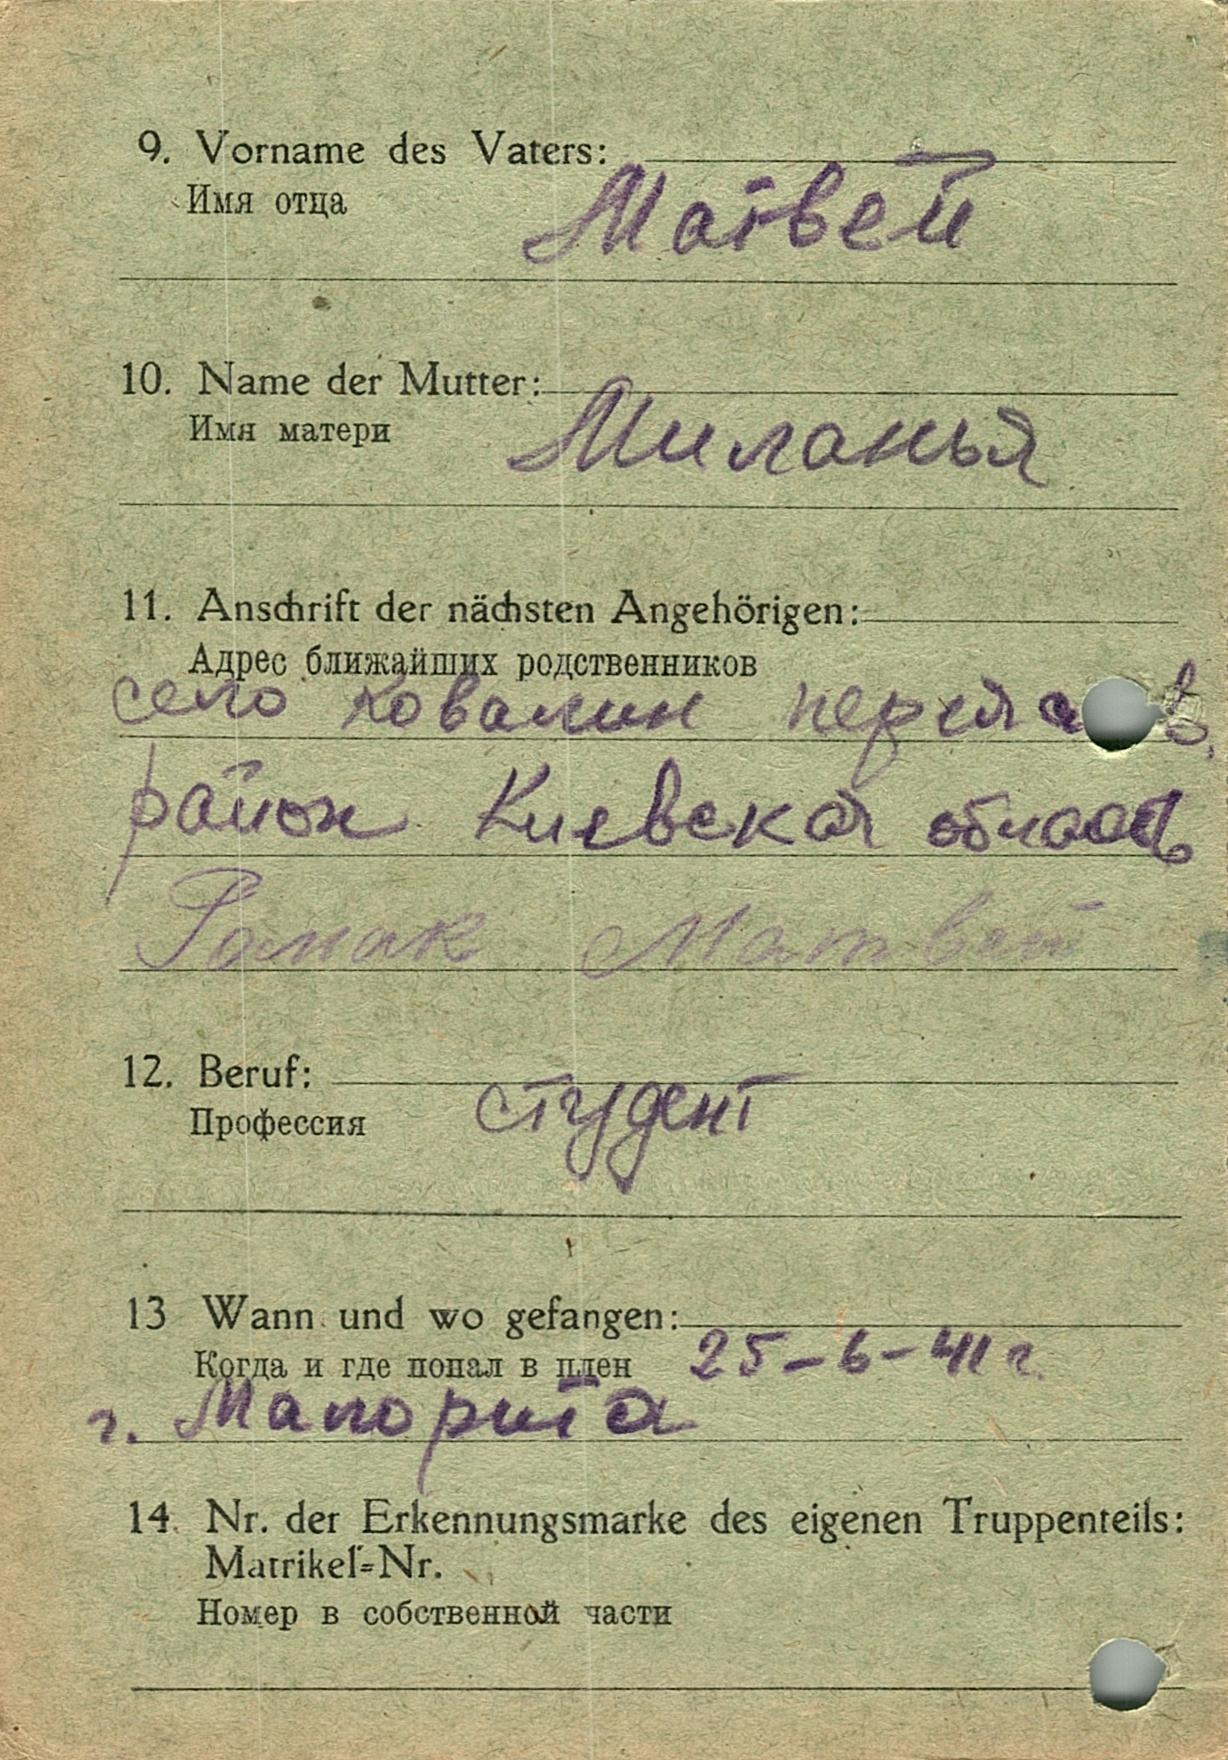 9. Vorname des Vaters:
Имя отца
Матвей
10. Name der Mutter:
Имя матери
Миланья
11. Anschrift der nächsten Angehörigen:
Адрес ближайших родственников
село Ковалин
район Киевская область
Матвей
12. Beruf:
Профессия
студент
13 Wann und wo gefangen:
Когда и где попал в плен 25-6-41 г.
г. Малорита
14. Nr. der Erkennungsmarke des eigenen Truppenteils:
Matrikel=Nr.
Номер в собственной части